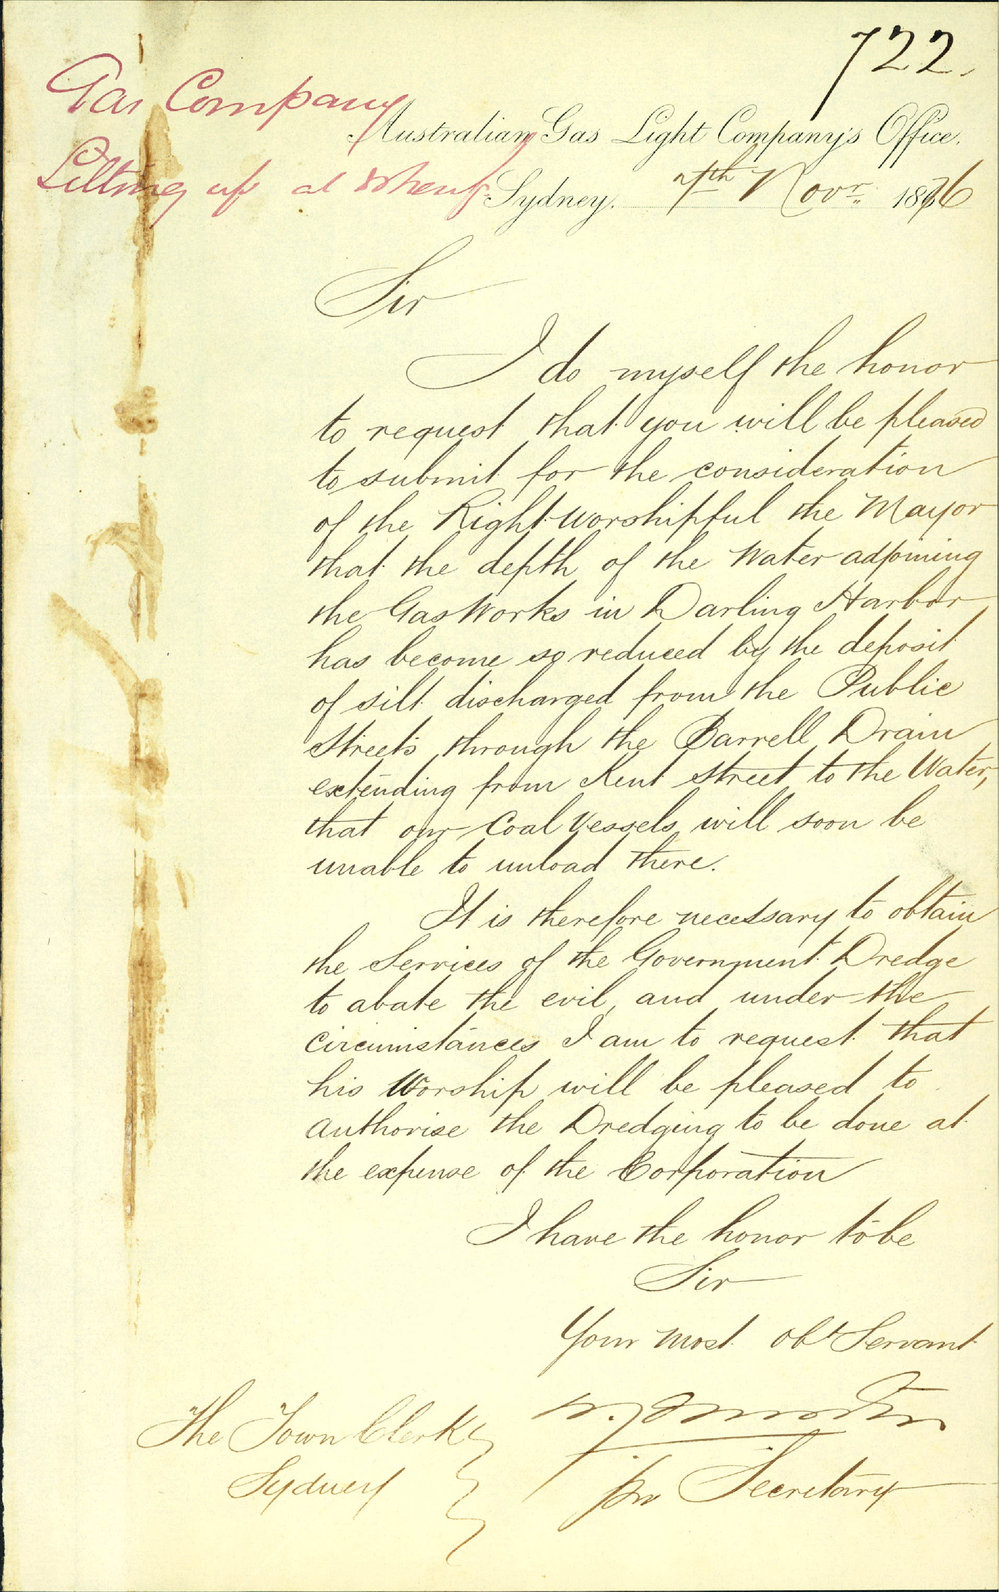 722.
Gas Company
Silting up at Wharf
Australian Gas Light Company's Office.
Sydney. 7th Novr. 1876
Sir
I do myself the honor
to request that you will be pleased
to submit for the consideration
of the Right Worshipful the Mayor
that the depth of the Water adjoining
the Gas Works in Darling Harbor
has become so reduced by the deposit
of silt discharged from the Public
Streets through the Barrell Drain
extending from Kent Street to the Water,
that our Coal Vessels will soon be
unable to unload there.
It is therefore necessary to obtain
the Services of the Government Dredge
to abate the evil, and under the
circumstances I am to request that
his Worship will be pleased to
authorise the Dredging to be done at
the expense of the Corporation
I have the honor to be
Sir
Your most obt Servant
The Town Clerk
Sydney
pro Secretary